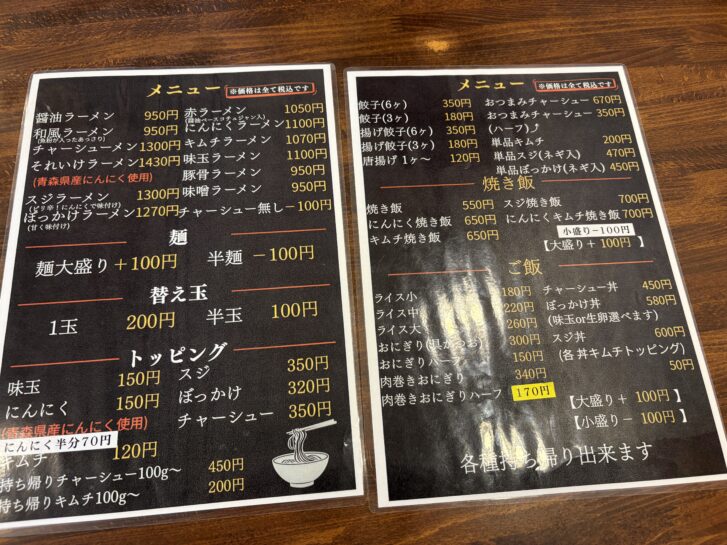 メニュー ※価格は全て税込です
醤油ラーメン 950円
和風ラーメン 950円
(魚粉が入ったあっさり)
チャーシューメン 1300円
それいけラーメン 1430円
(青森県産にんにく使用)
スジラーメン 1300円
(ピリ辛！にんにくで味付け)
ぼっかけラーメン 1270円
(甘く味付け)
赤ラーメン 1050円
(醤油ベースコチュジャン入)
にんにくラーメン 1100円
キムチラーメン 1070円
味玉ラーメン 1100円
豚骨ラーメン 950円
味噌ラーメン 950円
チャーシュー無し－100円
麺
麺大盛り＋100円 半麺 －100円
替え玉
1玉 200円 半玉 100円
トッピング
味玉 150円
にんにく 150円
(青森県産にんにく使用)
にんにく半分70円
キムチ 120円
持ち帰りチャーシュー100g～ 450円
持ち帰りキムチ100g～ 200円
スジ 350円
ぼっかけ 320円
チャーシュー 350円
メニュー ※価格は全て税込です
餃子(6ヶ) 350円
餃子(3ヶ) 180円
揚げ餃子(6ヶ) 350円
揚げ餃子(3ヶ) 180円
唐揚げ 1ヶ～ 120円
おつまみチャーシュー 670円
おつまみチャーシュー 350円
(ハーフ)⤴
単品キムチ 200円
単品スジ(ネギ入) 470円
単品ぼっかけ(ネギ入) 450円
焼き飯
焼き飯 550円
にんにく焼き飯 650円
キムチ焼き飯 650円
スジ焼き飯 700円
にんにくキムチ焼き飯 700円
小盛り－100円
【大盛り＋ 100円 】
ご飯
ライス小 180円
ライス中 220円
ライス大 260円
おにぎり(具かつお) 300円
おにぎりハーフ 150円
肉巻きおにぎり 340円
肉巻きおにぎりハーフ 170円
チャーシュー丼 450円
ぼっかけ丼 580円
(味玉or生卵選べます)
スジ丼 600円
(各丼キムチトッピング)
50円
【大盛り＋ 100円 】
【小盛り－ 100円 】
各種持ち帰り出来ます